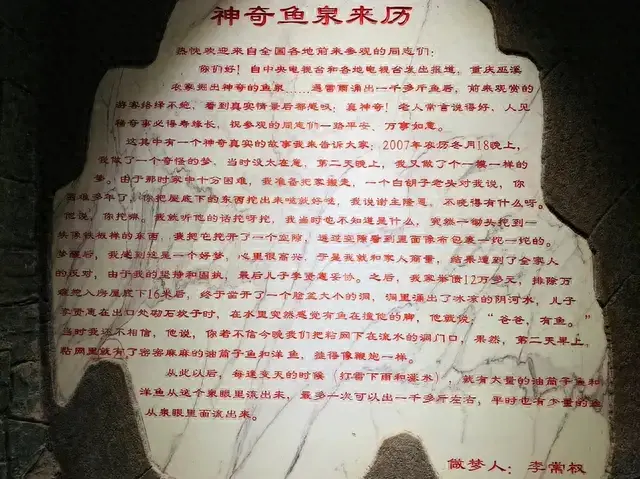 神奇鱼泉来历
热忱欢迎来自全国各地前来参观的同志们：
你们好！自中央电视台和各地电视台发出报道，重庆巫溪
农家挖出神奇的鱼泉……遇雷雨涌出一千多斤鱼后，前来观赏的
游客络绎不绝、看到真实情景后都感叹：真神奇！老人常言说得好，人见
稀奇事必得寿缘长，祝参观的同志们一路平安、万事如意。
这其中有一个神奇真实的故事我来告诉大家：2007年农历冬月18晚上，
我做了一个奇怪的梦、当时没太在意，第二天晚上，我又做了个一模一样的
梦。由于那时家中十分困难，我准备把家搬走，一个白胡子老头对我说，你
困难多年了，你把屋底下的东西挖出来哒就好哒，我说谢主隆恩，不晓得有什么呀。
他说，你挖嘛。我就听他的话挖呀挖，我当时也不知道是什么，突然一锄头挖到一
头像铁板样的东西，我把它挖开了一个空隙，通过空隙看到里面像布包裹一坨一坨的。
梦醒后，我感到这是一个好梦，心里很高兴，于是我就和家人商量，结果遭到了全家人
的反对，由于我的坚持和固执，最后儿子李贤惠妥协。之后，我家举债12万多元，排除万
难挖入房屋底下16米后，终于凿开了一个脸盆大小的洞，洞里涌出了冰凉的阴河水，儿子
李贤惠在出口处砌石坎子时，在水里突然感觉有鱼在撞他的脚，他就说：“爸爸，有鱼。”
当时我还不相信，他说，你若不信今晚我们把粘网下在流水的洞门口，果然，第二天早上，
粘网里就有了密密麻麻的油筒子鱼和洋鱼，缠得像鞭炮一样。
从此以后，每逢变天的时候（打雷下雨和涨水），就有大量的油筒子鱼和
洋鱼从这个泉眼里流出来，最多一次可以出一千多斤左右，平时也有少量的鱼
从泉眼里面流出来。
做梦人：李常权